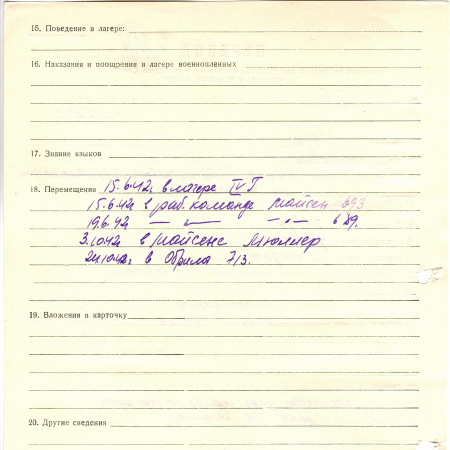 15. Поведение в лагере:
16. Наказания и поощрения в лагере военнопленных
17. Знание языков
18. Перемещения 15.6.42г в лагере IV Г
15.6.42г в раб. команде Майсен 693
19.6.42 — " — — " — 689.
3.10.42г в Майсене Мюллер
24.10.42г в 713.
19. Вложения в карточку
20. Другие сведения